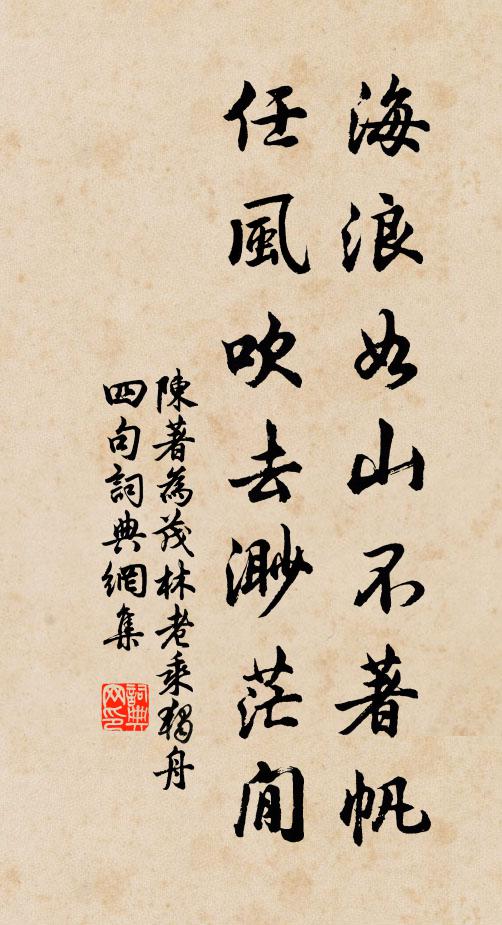 海浪如山不著帆
任風吹去渺茫間
陳著為茂林老乘獨舟
四句詞典網集
詞典
网印